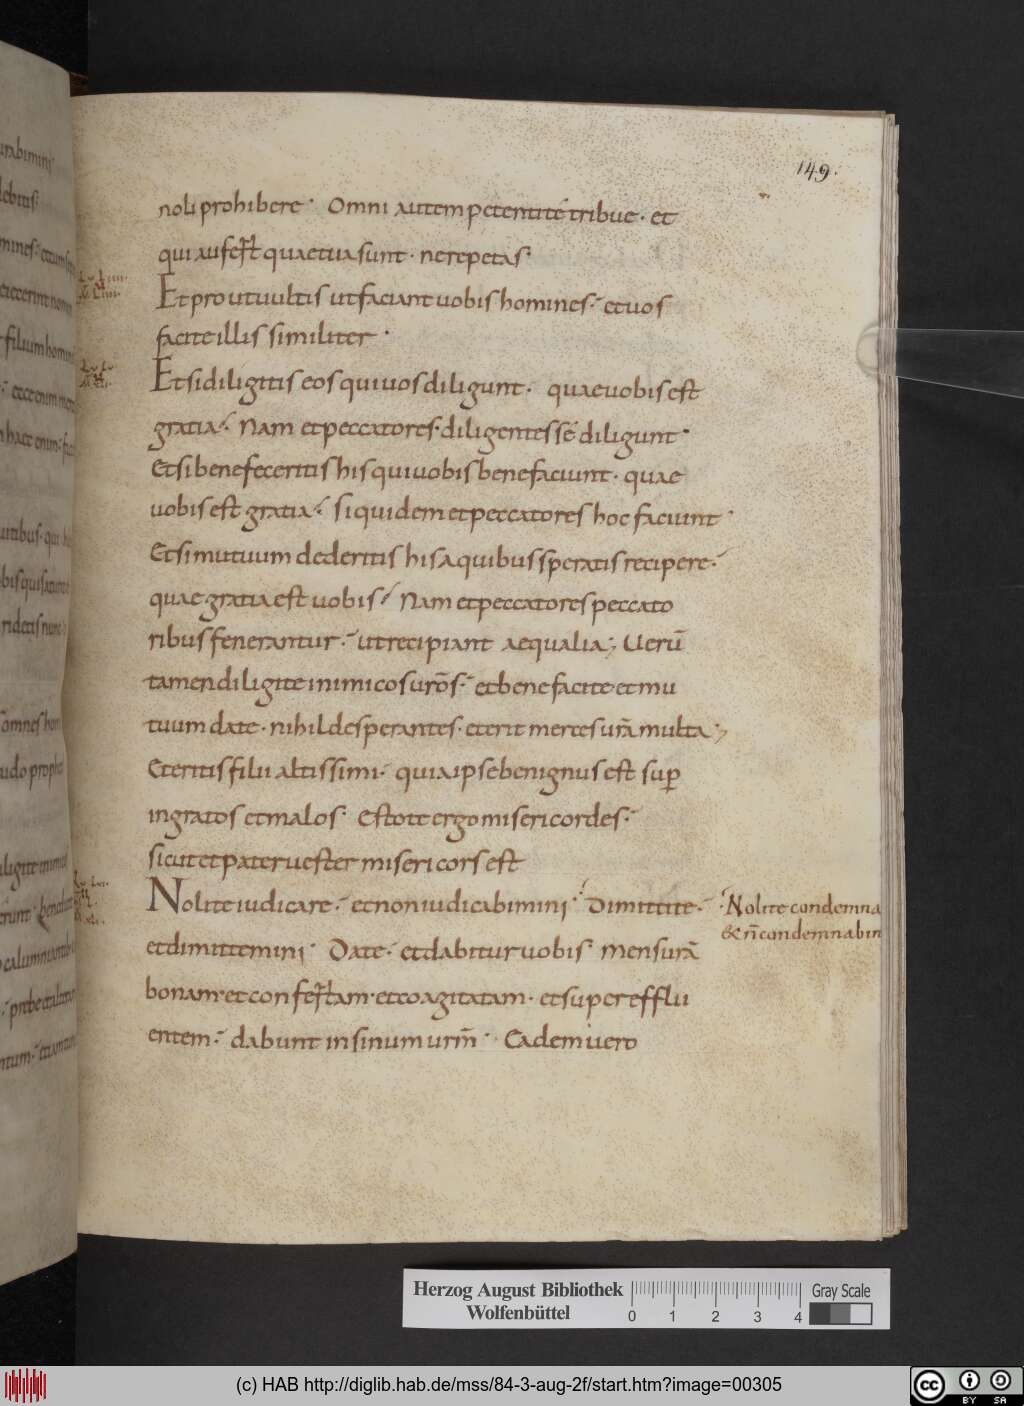 149.
noli prohibere· Omni autem petenti té tribue· et
qui aufert quae tua sunt· ne repetas·
Et prout uultis ut faciant uobis homines· et uos
facite illis similiter·
Et si diligitis eos qui uos diligunt· quae uobis est
gratia· Nam et peccatores· diligentes sé diligunt·
Et si benefeceritis his qui uobis benefaciunt· quae
uobis est gratia· siquidem et peccatores hoc faciunt·
Et si mutuum dederitis his a quibus speratis recipere·
quae gratia est uobis· Nam et peccatores peccato
ribus fenerantur· ut recipiant aequalia; Uerū
tamen diligite inimicos urōs· et bene facite et mu
tuum date· nihil desperantes· et erit merces urā multa;
Et eritis filii altissimi· quia ipse benignus est sup
ingratos et malos· Estote ergo misericordes·
sicut et pater uester misericors est
Nolite iudicare· et non iudicabimini· Dimittite·
·Nolite condemna
& n̄ condemnabim
et dimittemini· Date· et dabitur uobis· mensurā
bonam· et confertam· et coagitatam· et superefflu
entem· dabunt in sinum urm̄· Eadem uero
Herzog August Bibliothek
Wolfenbüttel
0 1 2 3 4
Gray Scale
(c) HAB http://diglib.hab.de/mss/84-3-aug-2f/start.htm?image=00305
cc BY SA